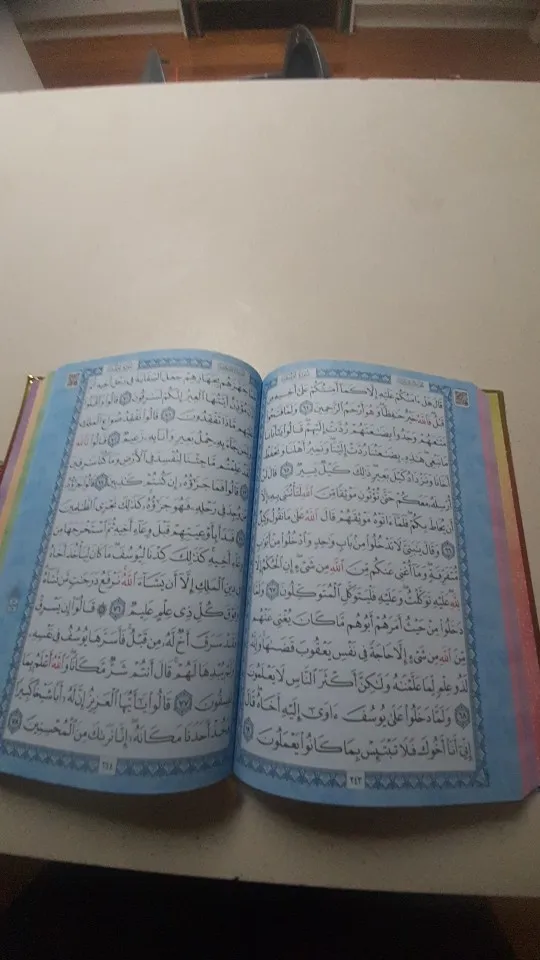 قَالَ هَلْ ءَامَنُكُمْ عَلَيْهِ إِلَّا كَمَآ أَمِنتُكُمْ عَلَىٰٓ أَخِيهِ مِن
قَبْلُ فَٱللَّهُ خَيْرٌ حَٰفِظًا وَهُوَ أَرْحَمُ ٱلرَّٰحِمِينَ ٦٤ وَلَمَّا فَتَحُوا۟
مَتَٰعَهُمْ وَجَدُوا۟ بِضَٰعَتَهُمْ رُدَّتْ إِلَيْهِمْ قَالُوا۟ يَٰٓأَبَانَا
مَا نَبْغِى هَٰذِهِۦ بِضَٰعَتُنَا رُدَّتْ إِلَيْنَا وَنَمِيرُ أَهْلَنَا وَنَحْفَظُ
أَخَانَا وَنَزْدَادُ كَيْلَ بَعِيرٍ ذَٰلِكَ كَيْلٌ يَسِيرٌ ٦٥
أُرْسِلَهُۥ مَعَكُمْ حَتَّىٰ تُؤْتُونِ مَوْثِقًا مِّنَ ٱللَّهِ لَتَأْتُنَّنِى بِهِۦٓ إِلَّآ
أَن يُحَاطَ بِكُمْ فَلَمَّآ ءَاتَوْهُ مَوْثِقَهُمْ قَالَ ٱللَّهُ عَلَىٰ مَا نَقُولُ وَكِيلٌ
٦٦ وَقَالَ يَٰبَنِىَّ لَا تَدْخُلُوا۟ مِنۢ بَابٍ وَٰحِدٍ وَٱدْخُلُوا۟ مِنْ أَبْوَٰبٍ
مُّتَفَرِّقَةٍ وَمَآ أُغْنِى عَنكُم مِّنَ ٱللَّهِ مِن شَىْءٍ إِنِ ٱلْحُكْمُ إِلَّا
لِلَّهِ عَلَيْهِ تَوَكَّلْتُ وَعَلَيْهِ فَلْيَتَوَكَّلِ ٱلْمُتَوَكِّلُونَ ٦٧ وَلَمَّا
دَخَلُوا۟ مِنْ حَيْثُ أَمَرَهُمْ أَبُوهُم مَّا كَانَ يُغْنِى عَنْهُم
مِّنَ ٱللَّهِ مِن شَىْءٍ إِلَّا حَاجَةً فِى نَفْسِ يَعْقُوبَ قَضَىٰهَا وَإِنَّهُۥ
لَذُو عِلْمٍ لِّمَا عَلَّمْنَٰهُ وَلَٰكِنَّ أَكْثَرَ ٱلنَّاسِ لَا يَعْلَمُونَ
٦٨ وَلَمَّا دَخَلُوا۟ عَلَىٰ يُوسُفَ ءَاوَىٰٓ إِلَيْهِ أَخَاهُ قَالَ
إِنِّىٓ أَنَا۠ أَخُوكَ فَلَا تَبْتَئِسْ بِمَا كَانُوا۟ يَعْمَلُونَ ٦٩
٢٤٣
جَهَّزَهُم بِجَهَازِهِمْ جَعَلَ ٱلسِّقَايَةَ فِى رَحْلِ أَخِيهِ
مُؤَذِّنٌ أَيَّتُهَا ٱلْعِيرُ إِنَّكُمْ لَسَٰرِقُونَ ٧٠ قَالُوا۟ وَأَقْبَلُوا۟
عَلَيْهِم مَّاذَا تَفْقِدُونَ ٧١ قَالُوا۟ نَفْقِدُ صُوَاعَ ٱلْمَلِكِ
جَآءَ بِهِۦ حِمْلُ بَعِيرٍ وَأَنَا۠ بِهِۦ زَعِيمٌ ٧٢ قَالُوا۟ تَٱللَّهِ
عَلِمْتُم مَّا جِئْنَا لِنُفْسِدَ فِى ٱلْأَرْضِ وَمَا كُنَّا سَٰرِقِينَ
٧٣ قَالُوا۟ فَمَا جَزَٰٓؤُهُۥٓ إِن كُنتُمْ كَٰذِبِينَ ٧٤ قَالُوا۟ جَزَٰٓؤُهُۥ
وُجِدَ فِى رَحْلِهِۦ فَهُوَ جَزَٰٓؤُهُۥ كَذَٰلِكَ نَجْزِى ٱلظَّٰلِمِينَ
٧٥ فَبَدَأَ بِأَوْعِيَتِهِمْ قَبْلَ وِعَآءِ أَخِيهِ ثُمَّ ٱسْتَخْرَجَهَا مِن
وِعَآءِ أَخِيهِ كَذَٰلِكَ كِدْنَا لِيُوسُفَ مَا كَانَ لِيَأْخُذَ أَخَاهُ
فِى دِينِ ٱلْمَلِكِ إِلَّآ أَن يَشَآءَ ٱللَّهُ نَرْفَعُ دَرَجَٰتٍ مَّن نَّشَآءُ
وَفَوْقَ كُلِّ ذِى عِلْمٍ عَلِيمٌ ٧٦ ۞ قَالُوٓا۟ إِن يَسْرِقْ
فَقَدْ سَرَقَ أَخٌ لَّهُۥ مِن قَبْلُ فَأَسَرَّهَا يُوسُفُ فِى نَفْسِهِۦ
وَلَمْ يُبْدِهَا لَهُمْ قَالَ أَنتُمْ شَرٌّ مَّكَانًا وَٱللَّهُ أَعْلَمُ بِمَا
تَصِفُونَ ٧٧ قَالُوا۟ يَٰٓأَيُّهَا ٱلْعَزِيزُ إِنَّ لَهُۥٓ أَبًا شَيْخًا كَبِيرًا
فَخُذْ أَحَدَنَا مَكَانَهُۥٓ إِنَّا نَرَىٰكَ مِنَ ٱلْمُحْسِنِينَ ٧٨
٢٤٤